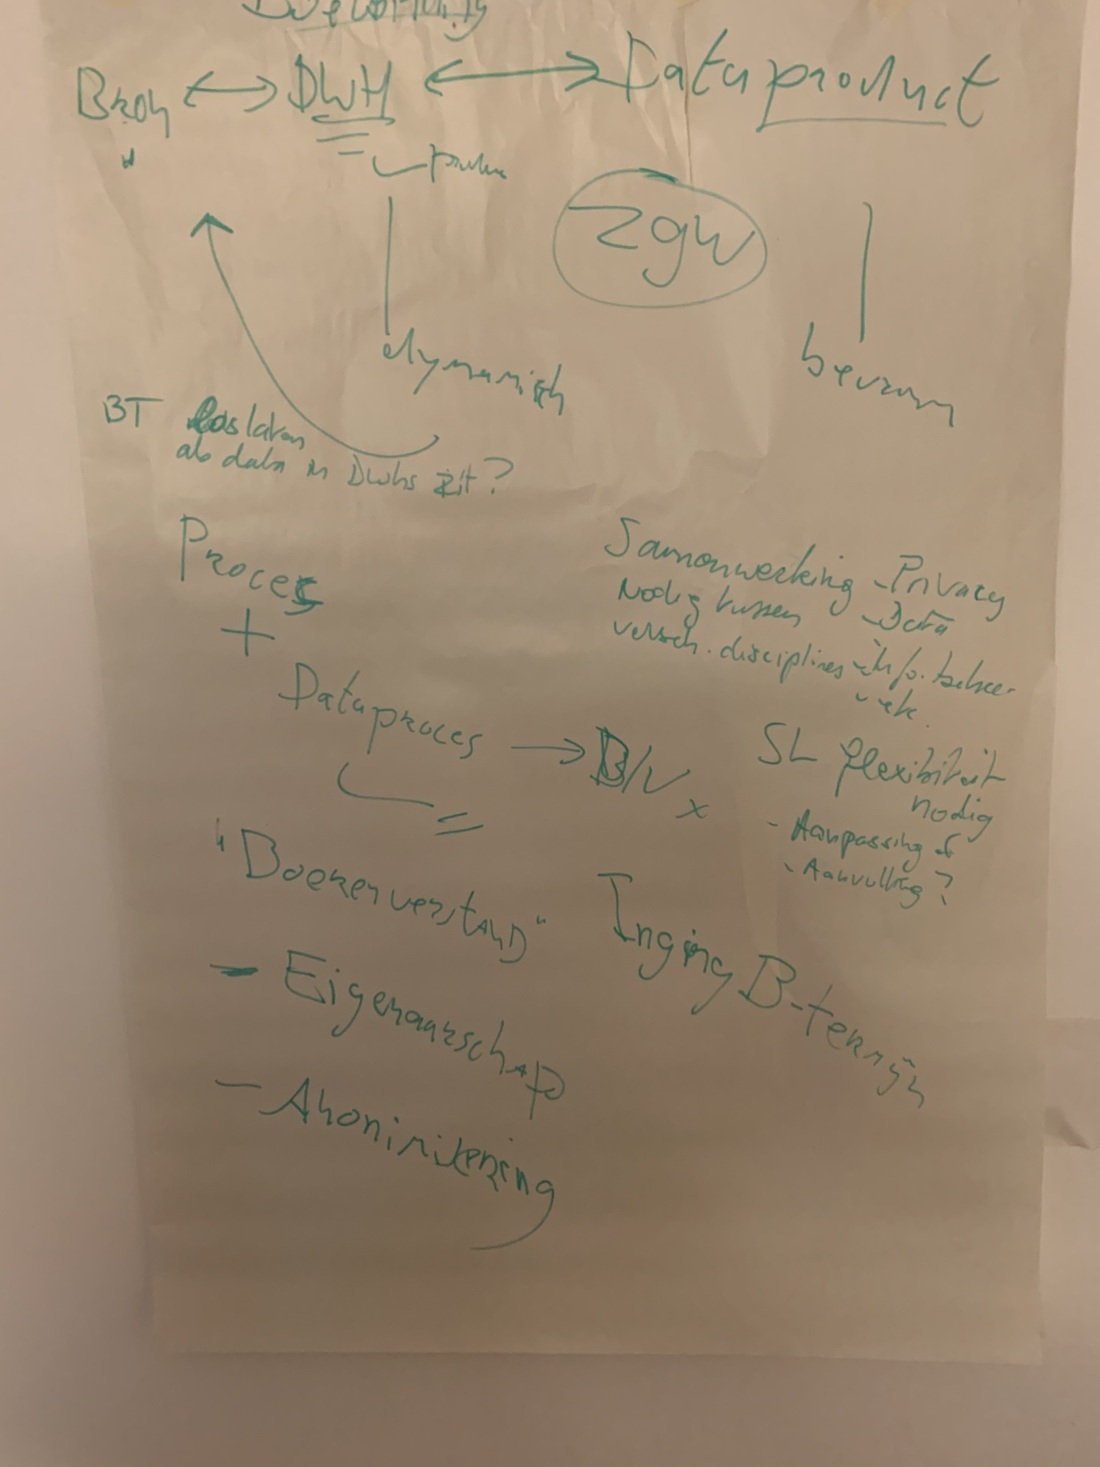 Bron ↔ DWH ↔ Dataproduct
zgw
dynamisch
BT loslaten
als data in DWHs zit?
Proces
+
Dataproces → B/V x
Samenwerking - Privacy
Nodig tussen - Data
versch. disciplines - info. beheer
- etc.
SL flexibiliteit
nodig
- Aanpassing of
- Aanvulling?
"Boerenverstand"
- Eigenaarschap
- Anonimisering
Inging B-termijn